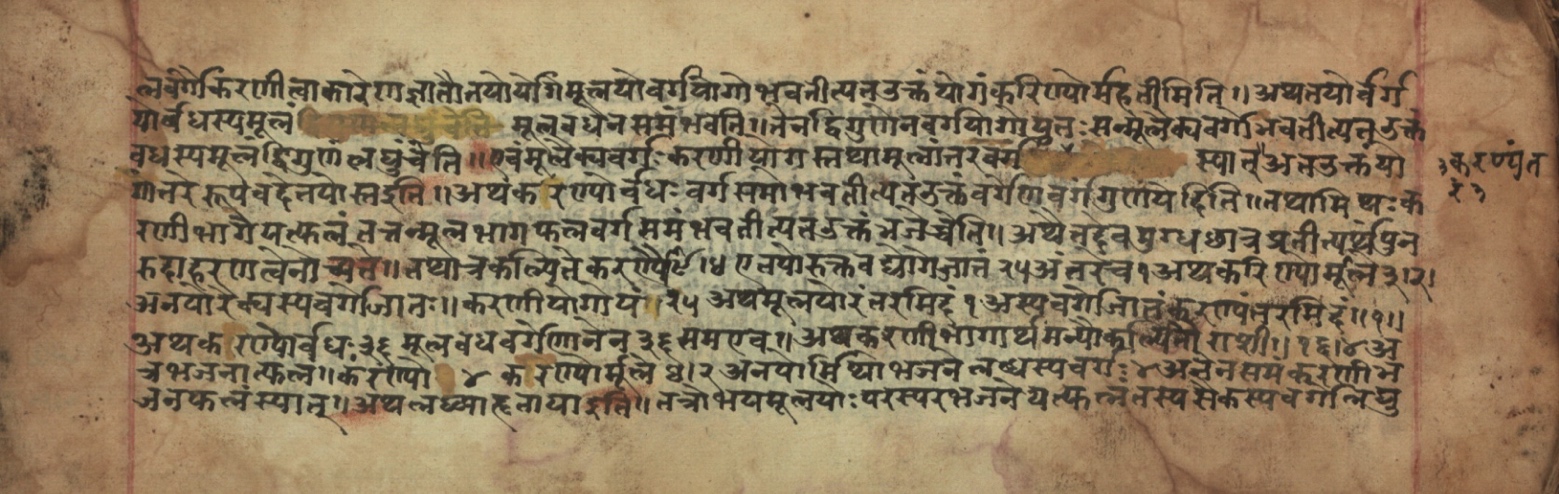 लवर्गौकरिणीत्वाकारेणज्ञातौतयोर्योगेमूलयोर्वर्गयोगोभवतीत्यतउक्तंयोगंकरिण्योर्महतीमिति॥अथतयोर्वर्ग
योर्वधस्यमूलं मूलवधेनसमंभवति॥तेनद्विगुणेनवर्गयोगोयुतःसन्मूलैक्यवर्गोभवतीत्यतउक्तं
वधस्यमूलंद्विगुणंलघुंचेति॥एवंमूलैक्यवर्गःकरणीयोगस्तथामूलांतरवर्ग स्यात्अतउक्तंयो
गांतरेरूपवदेतयोस्तइति॥अथकरण्योर्वधःवर्गसमोभवतीत्यतउक्तंवर्गेणवर्गंगुणयेदिति॥तथामिथःक
रणीभागेयत्फलंतत्तन्मूलभागफलवर्गसमंभवतीत्यतउक्तंभजेच्चेति॥अथैतदेवमुग्धछात्रप्रतीत्यर्थंपुन
रुदाहरणत्वेनोच्यते॥तथाचकल्पितेकरण्यौ९।४एतयोरुक्तवद्योगजातं२५अंतरंच१अथकरिण्योर्मूले३।२।
अनयोरैक्यस्यवर्गोजातः॥करणीयोगोयं२५अथमूलयोरंतरमिदं१अस्यवर्गोजातंकरण्यंतरमिदं॥१॥
अथकरण्योर्वधः३६मूलवधवर्गेणानेन३६समएव॥अथकरणीभागार्थमन्यौकल्पितौराशी॥१६।४अ
त्रभजनात्फलं॥करण्यो४करण्योर्मूले४।२अनयोर्मिथोभजनेलब्धस्यवर्गः४अनेनसमकरणीभ
जनफलंस्यात्॥अथलघ्व्याहृतायाइति॥तत्रोभयमूलयोःपरस्परभजनेयत्फलंतस्यसैकस्यवर्गोलघु
करण्यंत
रं